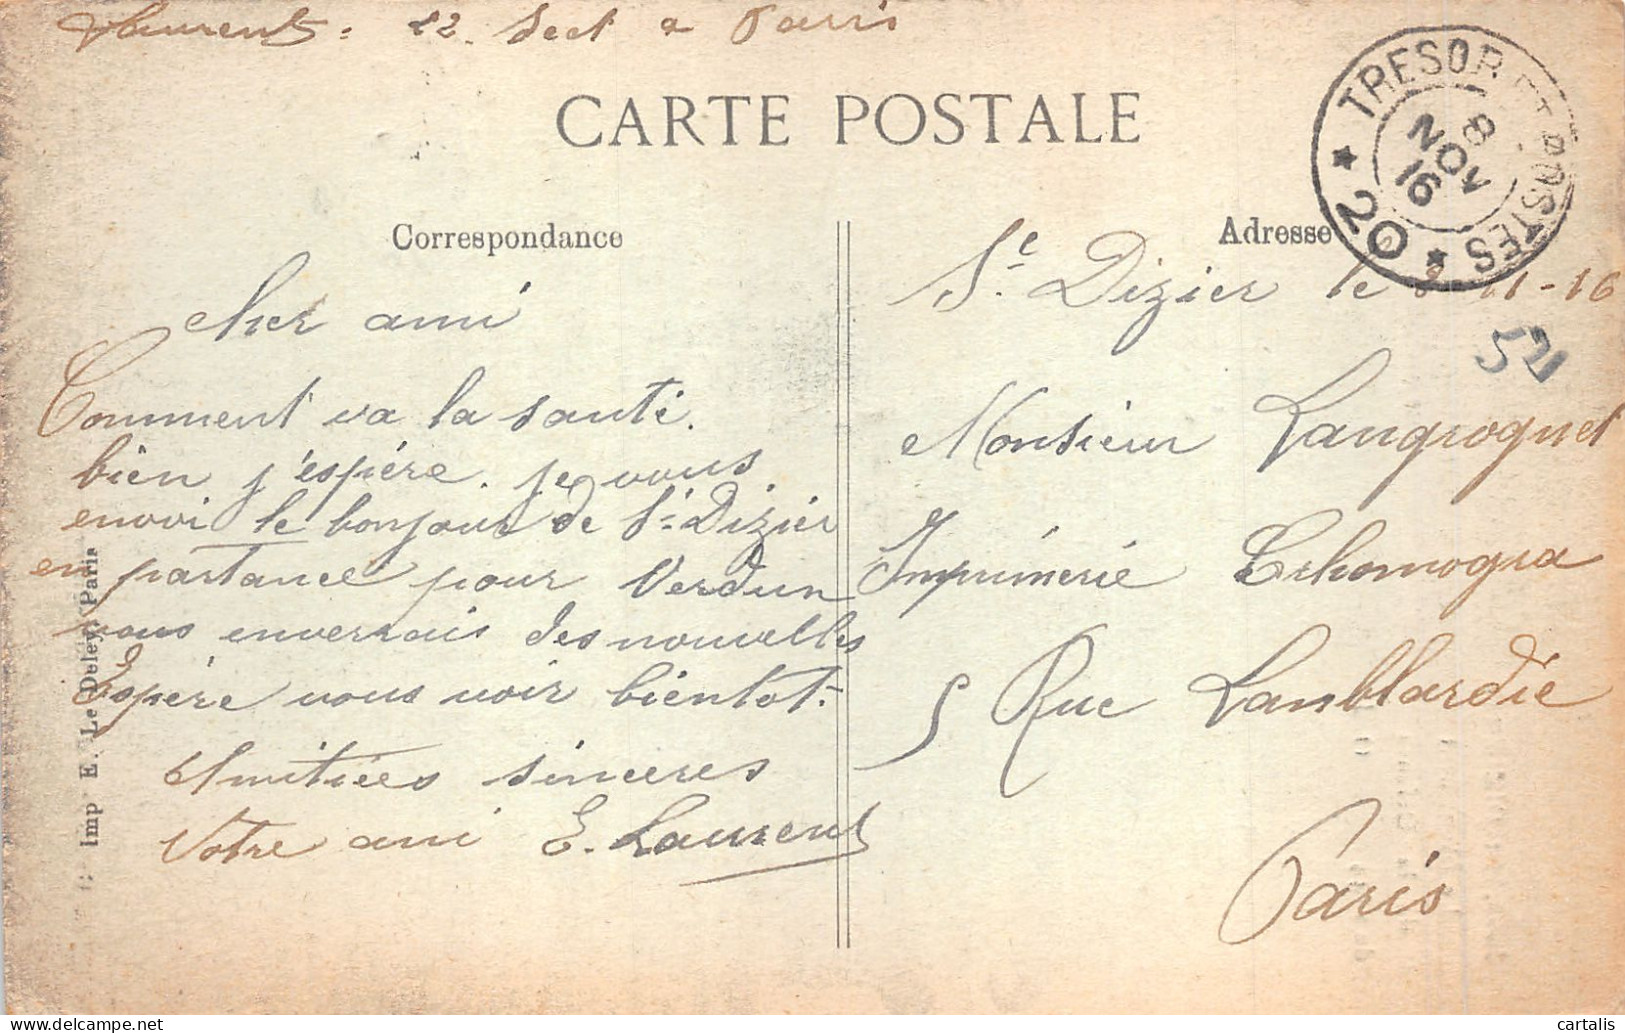 Laurent : 22 Sect a Paris
CARTE POSTALE
TRESOR ET POSTES
* 20 *
8
NOV
16
Correspondance
Adresse
St Dizier le 8-11-16
52
cher ami
Comment va la santé.
bien j'espère. je vous
envoi le bonjour de St Dizier
en partance pour Verdun
vous enverrais des nouvelles
Espère vous voir bientot.
Amitiées sinceres
Votre ami E. Laurent
Monsieur Langrognet
Imprimerie
5 Rue Lamblardie
Paris
Imp. E. Le Deley, Paris
cartalis